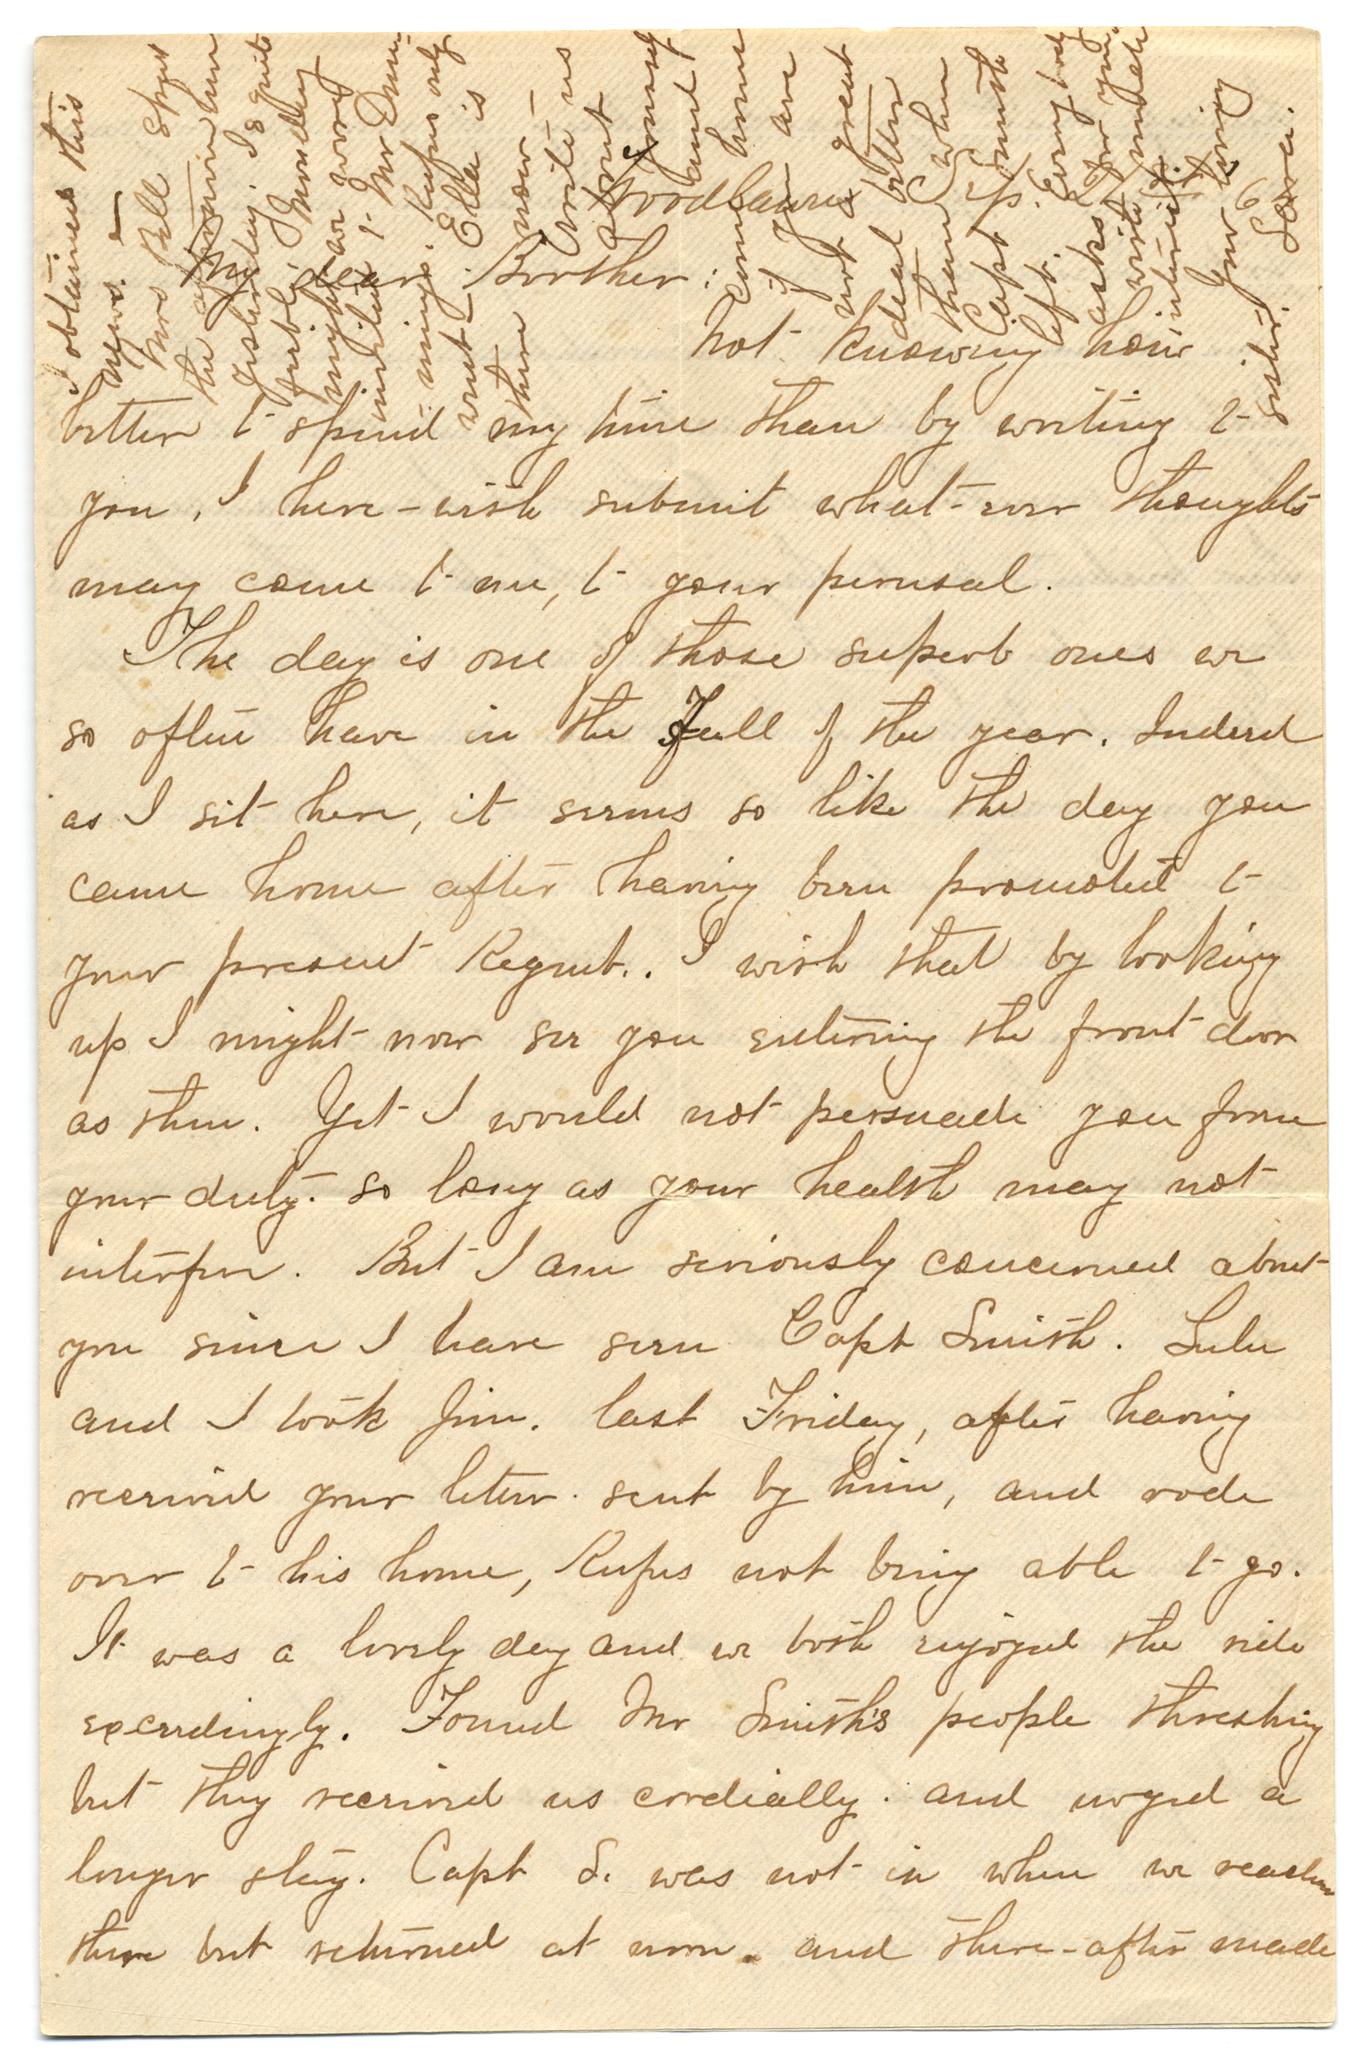 Woodlawn Sep. 27th / 6
My dear Brother:
Not knowing how
better to spend my time than by writing to
you, I here-with submit what-ever thoughts
may come to me, to your perusal.
The day is one of those superb ones we
so often have in the Fall of the year. Indeed
as I sit here, it seems so like the day you
came home after having been promoted to
your present Regmt.. I wish that by looking
up I might now see you entering the front door
as then. Yet I would not persuade you from
your duty. so long as your health may not
interfere. But I am seriously concerned about
you since I have seen Capt Smith. Lulu
and I took Jim. last Friday, after having
received your letter. sent by him, and rode
over to his home, Rufus not being able to go.
It was a lovely day and we both enjoyed the ride
exceedingly. Found Mr Smith's people threshing
but they received us cordially. and urged a
longer stay. Capt S. was not in when we reached
there but returned at noon. and there-after made
I obtained this
news.
Mrs Bell spent
the afternoon here
yesterday. Is quite
feeble. Monday
night we were
invited to Mr
mings. Rufus only
went. Ella is
there now.
Write us
about yourself
and
come home
if you are
not a great
deal better
than when
Capt Smith
left. Every body
asks for you
write much
interest.
Your loving
sister. Lorea.